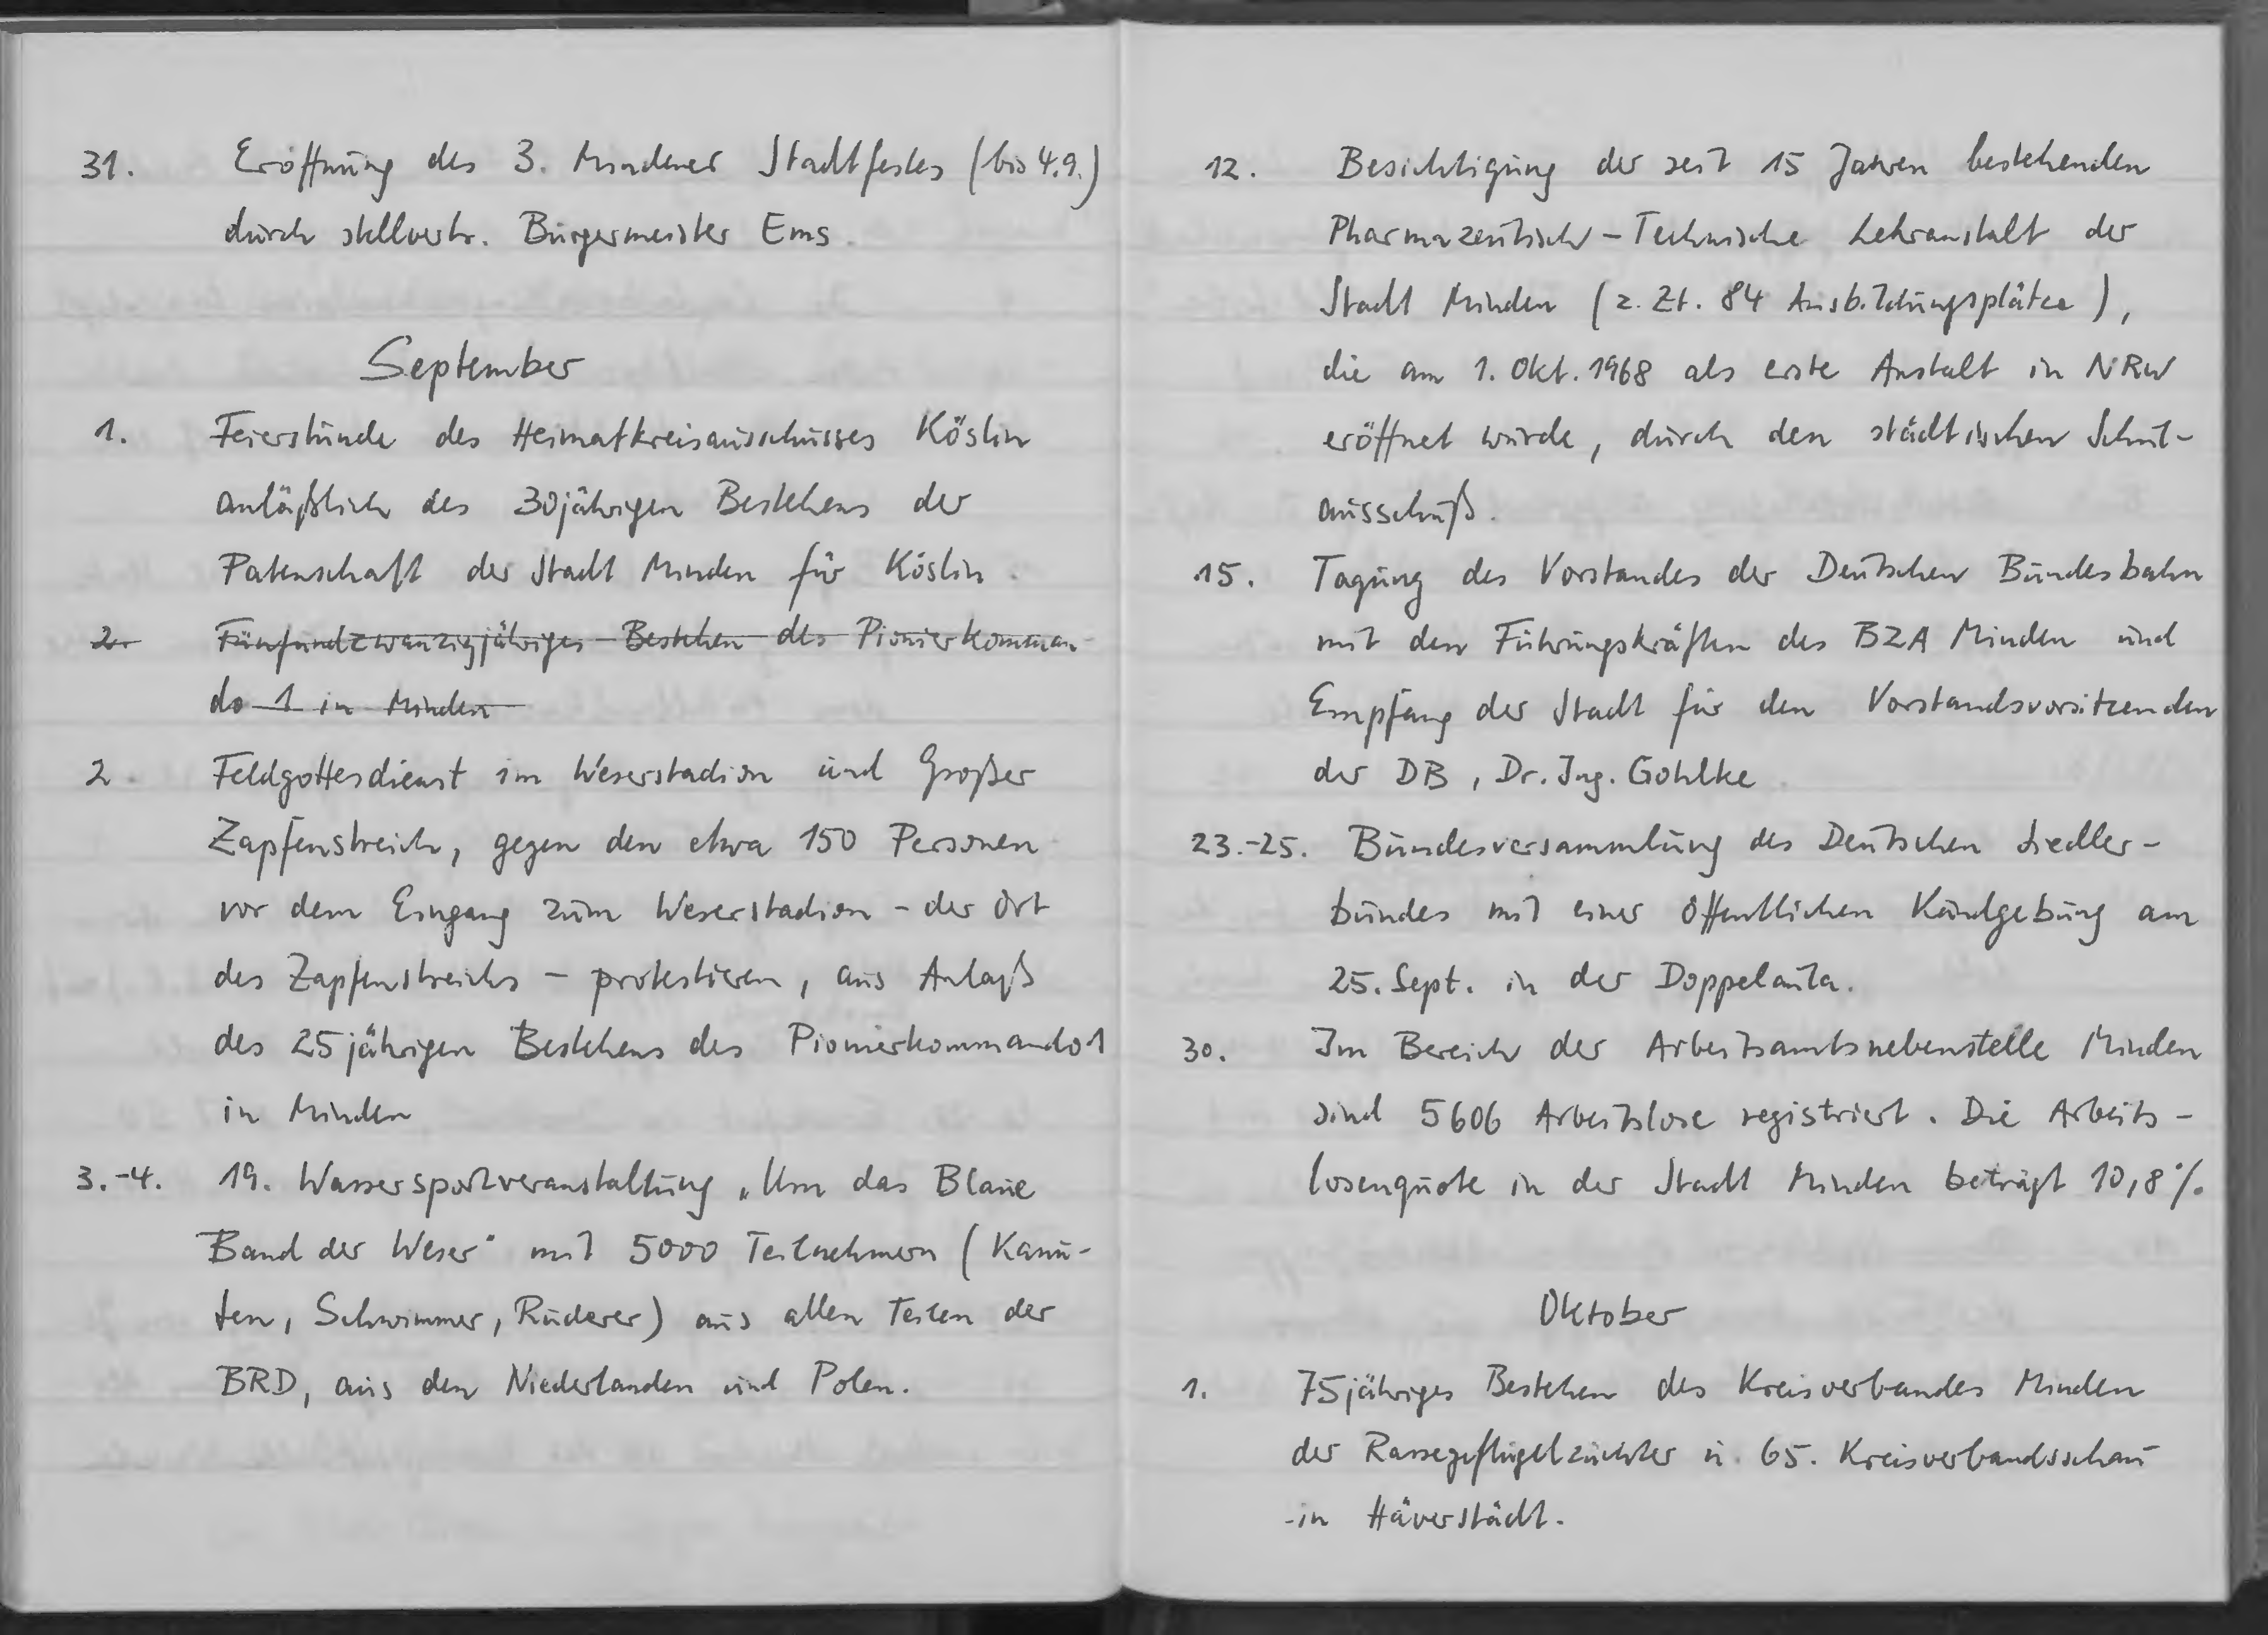 31. Eröffnung des 3. Mindener Stadtfestes (bis 4.9.)
durch stellvertr. Bürgermeister Ems.
September
1. Feierstunde des Heimatkreisausschusses Köslin
anläßlich des 30jährigen Bestehens der
Patenschaft der Stadt Minden für Köslin.
2. Fünfundzwanzigjähriges Bestehen des Pionierkomman-
do 1 in Minden
2. Feldgottesdienst im Weserstadion und Großer
Zapfenstreich, gegen den etwa 150 Personen
vor dem Eingang zum Weserstadion - der Ort
des Zapfenstreichs - protestieren, aus Anlaß
des 25jährigen Bestehens des Pionierkommandos 1
in Minden
3.-4. 19. Wassersportveranstaltung „Um das Blaue
Band der Weser" mit 5000 Teilnehmern (Kanu-
ten, Schwimmer, Ruderer) aus allen Teilen der
BRD, aus den Niederlanden und Polen.
12. Besichtigung der seit 15 Jahren bestehenden
Pharmazeutisch-Technische Lehranstalt der
Stadt Minden (z. Zt. 84 Ausbildungsplätze),
die am 1. Okt. 1968 als erste Anstalt in NRW
eröffnet wurde, durch den städtischen Schul-
ausschuß.
15. Tagung des Vorstandes der Deutschen Bundesbahn
mit den Führungskräften des BZA Minden und
Empfang der Stadt für den Vorstandsvorsitzenden
der DB, Dr. Ing. Gohlke
23.-25. Bundesversammlung des Deutschen Siedler-
bundes mit einer öffentlichen Kundgebung am
25. Sept. in der Doppelaula.
30. Im Bereich der Arbeitsamtsnebenstelle Minden
sind 5606 Arbeitslose registriert. Die Arbeits-
losenquote in der Stadt Minden beträgt 10,8%.
Oktober
1. 75jähriges Bestehen des Kreisverbandes Minden
der Rassegeflügelzüchter u. 65. Kreisverbandsschau
in Häverstädt.